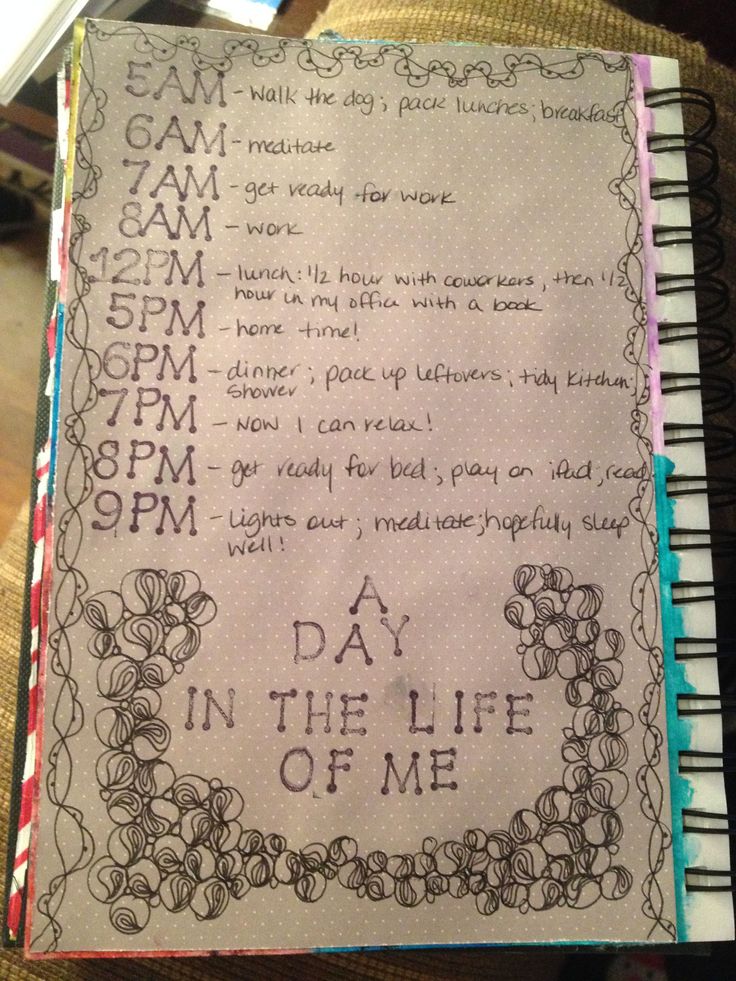 5AM - walk the dog; pack lunches; breakfast
6AM - meditate
7AM - get ready for work
8AM - work
12PM - lunch: 1/2 hour with coworkers, then 1/2
hour in my office with a book
5PM - home time!
6PM - dinner; pack up leftovers; tidy kitchen;
shower
7PM - Now I can relax!
8PM - get ready for bed; play on iPad; read
9PM - Lights out; meditate; hopefully sleep
well!
A
DAY
IN THE LIFE
OF ME